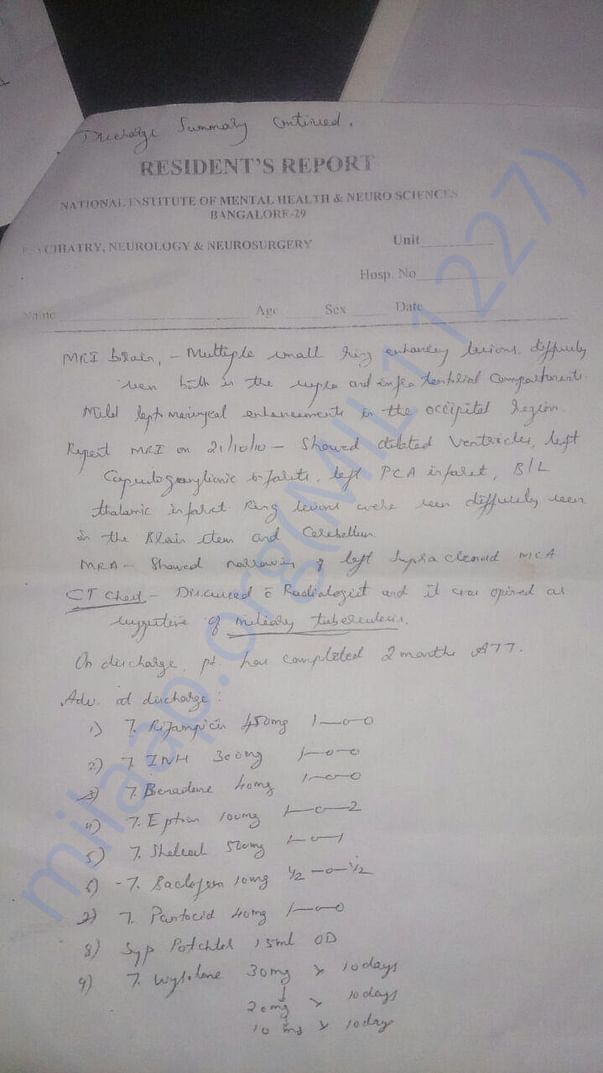 Discharge Summary Continued.
RESIDENT'S REPORT
NATIONAL INSTITUTE OF MENTAL HEALTH & NEURO SCIENCES
BANGALORE-29
PSYCHIATRY, NEUROLOGY & NEUROSURGERY Unit
Hosp. No
Name Age Sex Date
MRI brain, - Multiple small ring enhancing lesions diffusely
seen both in the supra and infra tentorial compartments.
Mild leptomeningeal enhancements in the occipital region.
Repeat MRI on 21/10/10 - Showed dilated ventricles, left
Capsuloganglionic infarcts, left PCA infarct, B/L
thalamic infarct. Ring lesions were seen diffusely seen
in the Brain stem and Cerebellum.
MRA - Showed narrowing of left Supra clenoid MCA
CT Chest - Discussed c Radiologist and it was opined as
suggestive of miliary tuberculosis.
On discharge, pt. has completed 2 months ATT.
Adv. at discharge:
1) T. Rifampicin 450mg 1-0-0
2) T INH 300mg 1-0-0
3) T. Benadone 40mg 1-0-0
4) T. Eptoin 100mg 1-0-2
5) T. Shelcal 500mg 1-0-1
6) T. Baclofen 10mg 1/2-0-1/2
7) T. Pantocid 40mg 1-0-0
8) Syp Potchlor 15ml OD
9) T. Wysolone 30mg x 10days
20mg x 10days
10mg x 10day
milaap.org(MIL11227)